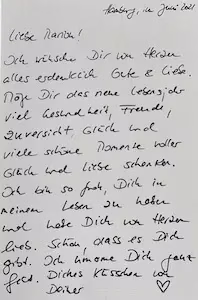 Hamburg, im Juni 2021
Liebe Marion!
Ich wünsche Dir von Herzen
alles erdenklich Gute & Liebe.
Möge Dir das neue Lebensjahr
viel Gesundheit, Freude,
Zuversicht, Glück und
viele schöne Momente voller
Glück und Liebe schenken.
Ich bin so froh, Dich in
meinem Leben zu haben
und habe Dich von Herzen
lieb. Schön, dass es Dich
gibt. Ich umarme Dich ganz
fest. Dickes Küsschen von
Deiner